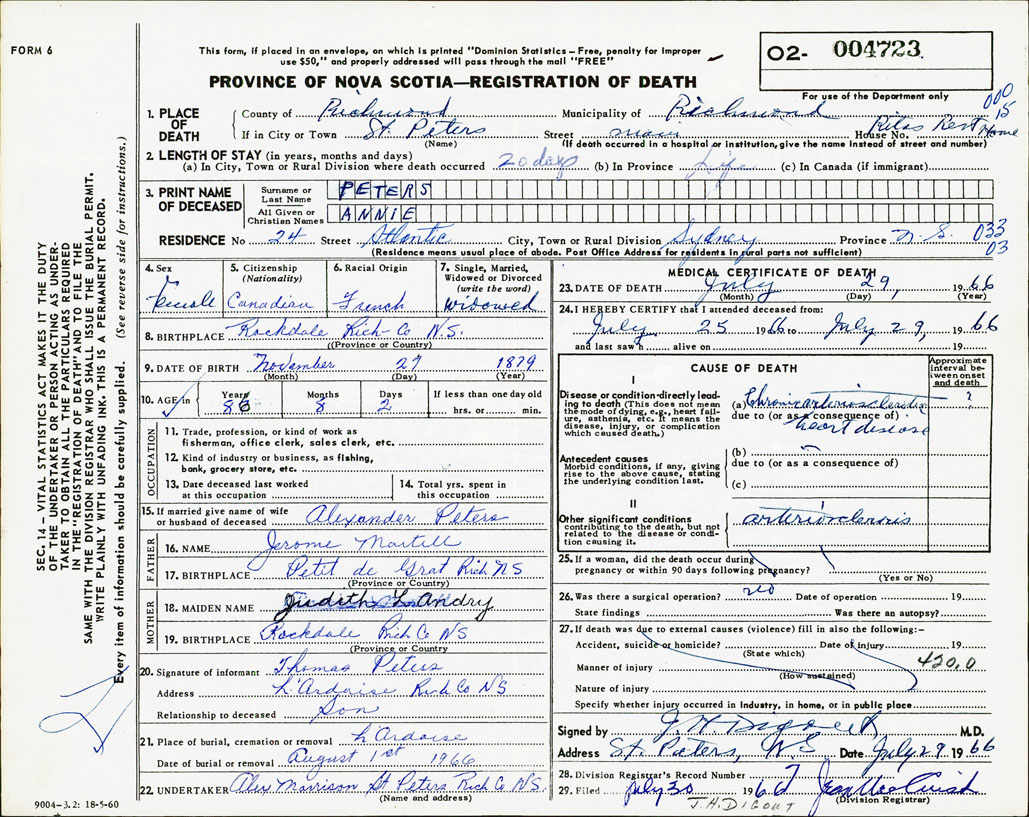 FORM 6
This form, if placed in an envelope, on which is printed "Dominion Statistics – Free, penalty for improper
use $50," and properly addressed will pass through the mail "FREE"
O2- 004723
PROVINCE OF NOVA SCOTIA—REGISTRATION OF DEATH
For use of the Department only
000
15
1. PLACE OF DEATH
County of Richmond Municipality of Richmond
If in City or Town St. Peters Street main House No. Ritas Rest Home
(Name) (If death occurred in a hospital or institution, give the name instead of street and number)
2. LENGTH OF STAY (in years, months and days)
(a) In City, Town or Rural Division where death occurred 20 days (b) In Province Life (c) In Canada (if immigrant)
3. PRINT NAME OF DECEASED
Surname or Last Name PETERS
All Given or Christian Names ANNIE
RESIDENCE No 24 Street Atlantic City, Town or Rural Division Sydney Province N.S. 033
03
(Residence means usual place of abode. Post Office Address for residents in rural parts not sufficient)
4. Sex Female
5. Citizenship (Nationality) Canadian
6. Racial Origin French
7. Single, Married, Widowed or Divorced (write the word) widowed
8. BIRTHPLACE Rockdale Rich-Co N.S.
(Province or Country)
9. DATE OF BIRTH November 27 1879
(Month) (Day) (Year)
10. AGE in Years 86 Months 8 Days 2 If less than one day old
hrs. or min.
OCCUPATION
11. Trade, profession, or kind of work as
fisherman, office clerk, sales clerk, etc.
12. Kind of industry or business, as fishing,
bank, grocery store, etc.
13. Date deceased last worked
at this occupation
14. Total yrs. spent in
this occupation
15. If married give name of wife
or husband of deceased Alexander Peters
FATHER
16. NAME Jerome Martell
17. BIRTHPLACE Petit de Grat Rich NS
(Province or Country)
MOTHER
18. MAIDEN NAME Judith Landry
19. BIRTHPLACE Rockdale Rich Co NS
(Province or Country
20. Signature of informant Thomas Peters
Address L'Ardoise Rich Co NS
Relationship to deceased Son
21. Place of burial, cremation or removal L'Ardoise
Date of burial or removal August 1st 1966
22. UNDERTAKER Alex Morrison St Peters Rich Co N.S.
(Name and address)
MEDICAL CERTIFICATE OF DEATH
23. DATE OF DEATH July 29, 1966
(Month) (Day) (Year)
24. I HEREBY CERTIFY that I attended deceased from:
July 25 1966 to July 29, 1966
and last saw h alive on 19
CAUSE OF DEATH
Approximate interval between onset and death
I
Disease or condition-directly leading to death (This does not mean the mode of dying, e.g., heart failure, asthenia, etc. It means the disease, injury, or complication which caused death.)
(a) Chronic arteriosclerotic ?
due to (or as a consequence of)
heart disease
Antecedent causes
Morbid conditions, if any, giving rise to the above cause, stating the underlying condition last.
(b)
due to (or as a consequence of)
(c)
II
Other significant conditions
contributing to the death, but not related to the disease or condition causing it.
arteriosclerosis
25. If a woman, did the death occur during
pregnancy or within 90 days following pregnancy?
(Yes or No)
26. Was there a surgical operation? no Date of operation 19
State findings Was there an autopsy?
27. If death was due to external causes (violence) fill in also the following:–
Accident, suicide or homicide? Date of injury 19
(State which)
420.0
Manner of injury
(How sustained)
Nature of injury
Specify whether injury occurred in industry, in home, or in public place
Signed by M.D.
Address St. Peters, N.S Date July 29 1966
28. Division Registrar's Record Number 7
29. Filed July 30 1966
J.H. DIGOUT
(Division Registrar)
9004-3.2: 18-5-60
SEC. 14 – VITAL STATISTICS ACT MAKES IT THE DUTY
OF THE UNDERTAKER OR PERSON ACTING AS UNDER-
TAKER TO OBTAIN ALL THE PARTICULARS REQUIRED
IN THE "REGISTRATION OF DEATH" AND TO FILE THE
SAME WITH THE DIVISION REGISTRAR WHO SHALL ISSUE THE BURIAL PERMIT.
WRITE PLAINLY WITH UNFADING INK. THIS IS A PERMANENT RECORD.
Every item of information should be carefully supplied. (See reverse side for instructions.)